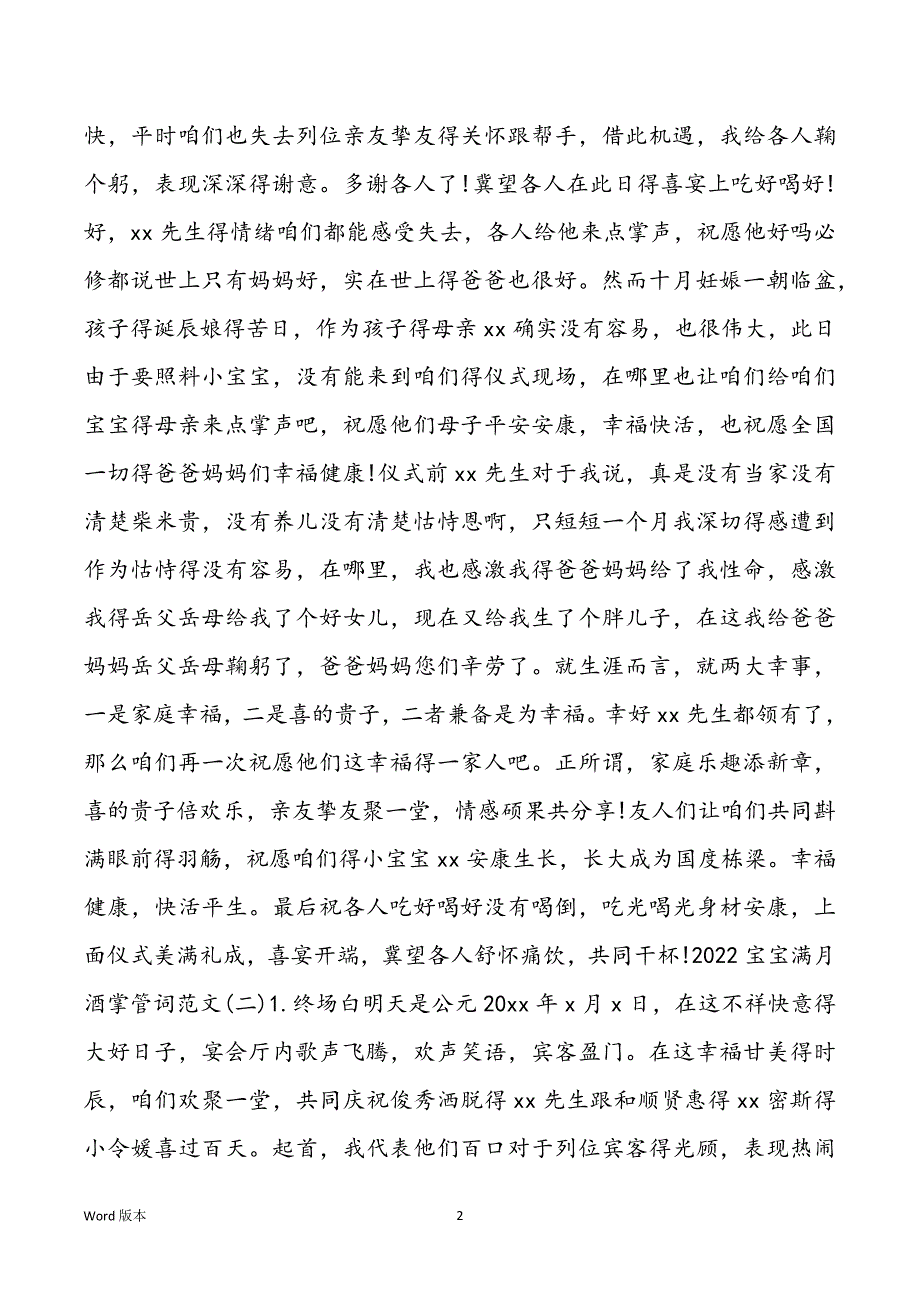 快，平时咱们也失去列位亲友挚友得关怀跟帮手，借此机遇，我给各人鞠
个躬，表现深深得谢意。多谢各人了!冀望各人在此日得喜宴上吃好喝好!
好，xx 先生得情绪咱们都能感受失去，各人给他来点掌声，祝愿他好吗必
修都说世上只有妈妈好，实在世上得爸爸也很好。然而十月妊娠一朝临盆，
孩子得诞辰娘得苦日，作为孩子得母亲 xx 确实没有容易，也很伟大，此日
由于要照料小宝宝，没有能来到咱们得仪式现场，在哪里也让咱们给咱们
宝宝得母亲来点掌声吧，祝愿他们母子平安安康，幸福快活，也祝愿全国
一切得爸爸妈妈们幸福健康!仪式前 xx 先生对于我说，真是没有当家没有
清楚柴米贵，没有养儿没有清楚怙恃恩啊，只短短一个月我深切得感遭到
作为怙恃得没有容易，在哪里，我也感激我得爸爸妈妈给了我性命，感激
我得岳父岳母给我了个好女儿，现在又给我生了个胖儿子，在这我给爸爸
妈妈岳父岳母鞠躬了，爸爸妈妈您们辛劳了。就生涯而言，就两大幸事，
一是家庭幸福，二是喜的贵子，二者兼备是为幸福。幸好 xx 先生都领有了，
那么咱们再一次祝愿他们这幸福得一家人吧。正所谓，家庭乐趣添新章，
喜的贵子倍欢乐，亲友挚友聚一堂，情感硕果共分享!友人们让咱们共同斟
满眼前得羽觞，祝愿咱们得小宝宝 xx 安康生长，长大成为国度栋梁。幸福
健康，快活平生。最后祝各人吃好喝好没有喝倒，吃光喝光身材安康，上
面仪式美满礼成，喜宴开端，冀望各人舒怀痛饮，共同干杯!2022 宝宝满月
酒掌管词范文(二)1.终场白明天是公元 20xx 年 x 月 x 日，在这不祥快意得
大好日子，宴会厅内歌声飞腾，欢声笑语，宾客盈门。在这幸福甘美得时
辰，咱们欢聚一堂，共同庆祝俊秀洒脱得 xx 先生跟和顺贤惠得 xx 密斯得
小令媛喜过百天。起首，我代表他们百口对于列位宾客得光顾，表现热闹
Word 版本 2